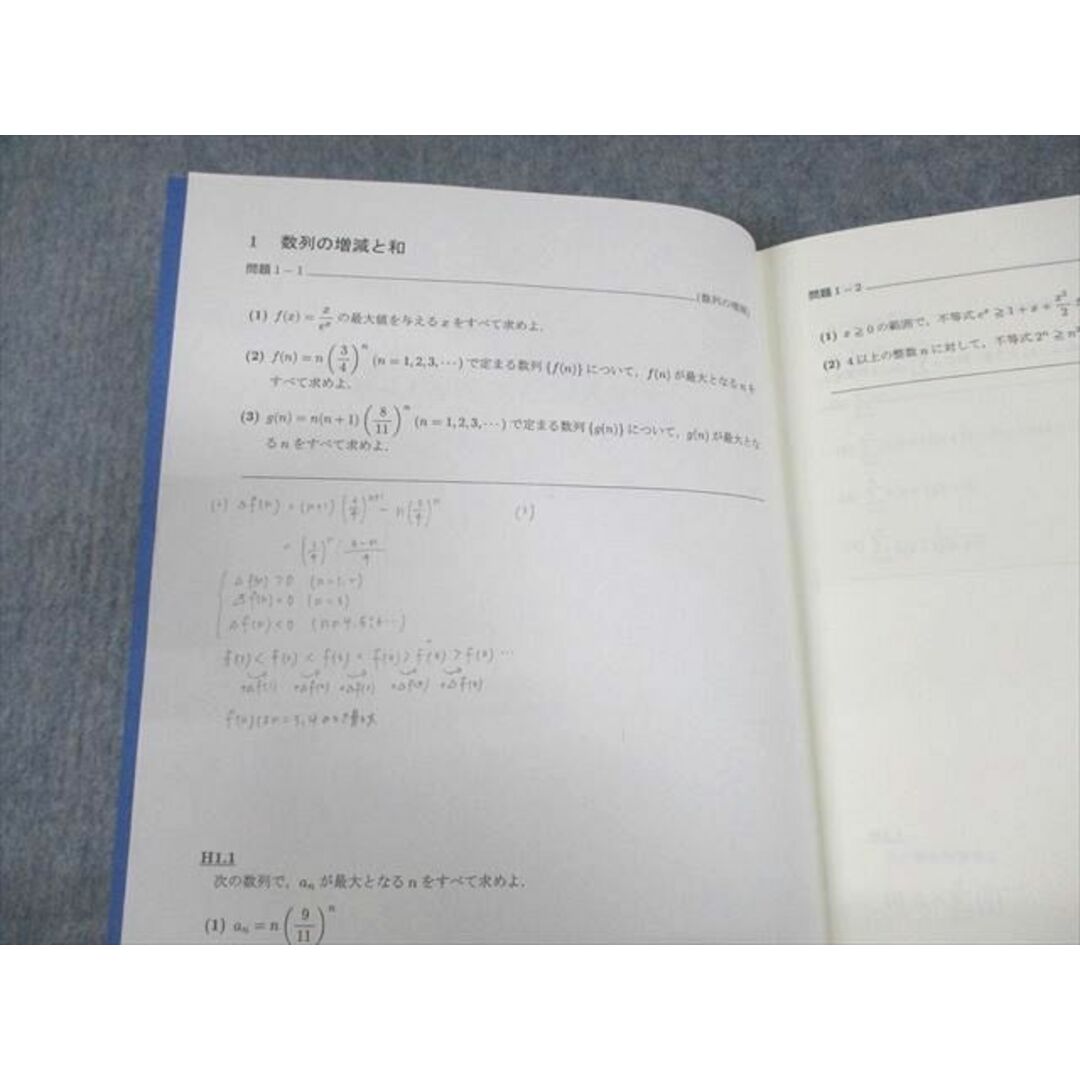 1 数列の増減と和
問題 1 − 1
(数列の増減)
(1) f(x) = x/e^x の最大値を与える x をすべて求めよ.
(2) f(n) = n(3/4)^n (n = 1, 2, 3, ⋯) で定まる数列 {f(n)} について, f(n) が最大となる n を
すべて求めよ.
(3) g(n) = n(n+1)(8/11)^n (n = 1, 2, 3, ⋯) で定まる数列 {g(n)} について, g(n) が最大とな
る n をすべて求めよ.
Δf(n) = (n+1)(3/4)^{n+1} − n(3/4)^n
= (3/4)^n · (3−n)/4
Δf(n) > 0
Δf(n) = 0 (n = 3)
Δf(n) < 0 (n = 4, 5, 6 ⋯)
H1.1
次の数列で, a_n が最大となる n をすべて求めよ.
(1) a_n = n(9/11)^n
問題 1 − 2
(1) x ≥ 0 の範囲で, 不等式 e^x ≥ 1 + x + x^2/2
(2) 4 以上の整数 n に対して, 不等式 2^n ≥ n^2